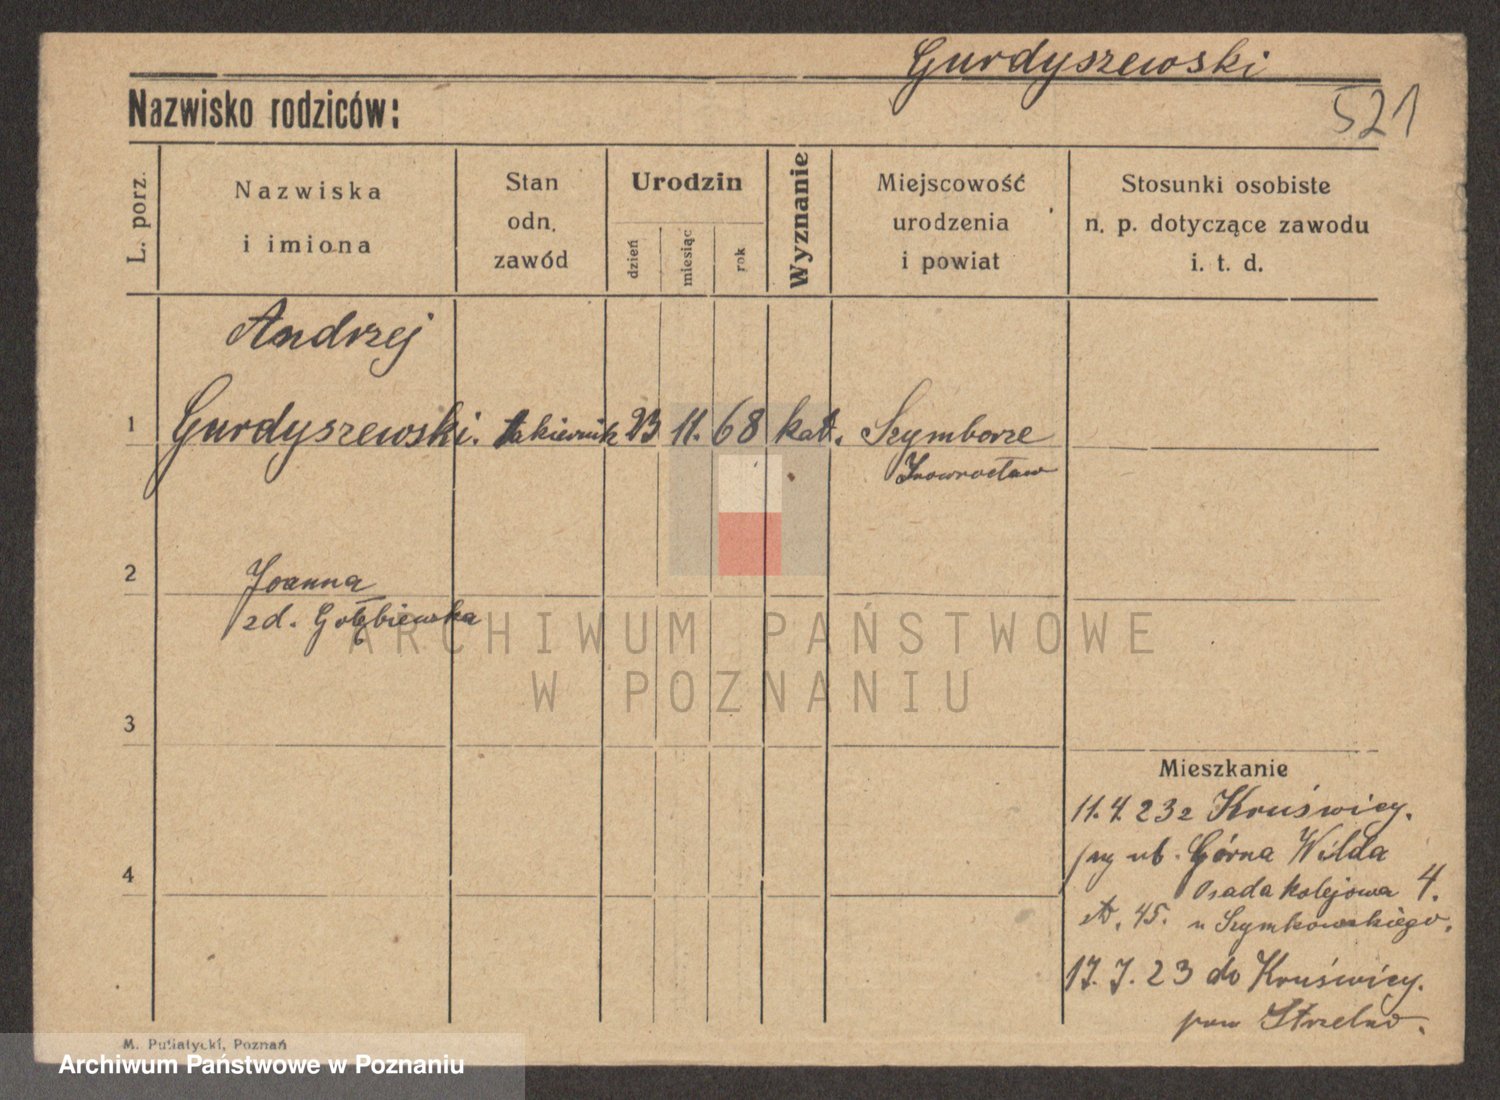 Gurdyszewski
Nazwisko rodziców:
521
L. porz.
Nazwiska
i imiona
Stan
odn.
zawód
Urodzin
dzień
miesiąc
rok
Wyznanie
Miejscowość
urodzenia
i powiat
Stosunki osobiste
n. p. dotyczące zawodu
i. t. d.
Andrzej
1 Gurdyszewski. 23 11. 68 kat. Szymborze
Inowrocław
2 Joanna
zd. Gołębiewska
ARCHIWUM PAŃSTWOWE
W POZNANIU
3
Mieszkanie
11.4.23 z Kruświcy.
Górna Wilda
4
Osada kolejowa 4.
45. u Szymkowskiego.
17.7.23 do Kruświcy.
pow Strzelno.
M. Putiatycki, Poznań
Archiwum Państwowe w Poznaniu